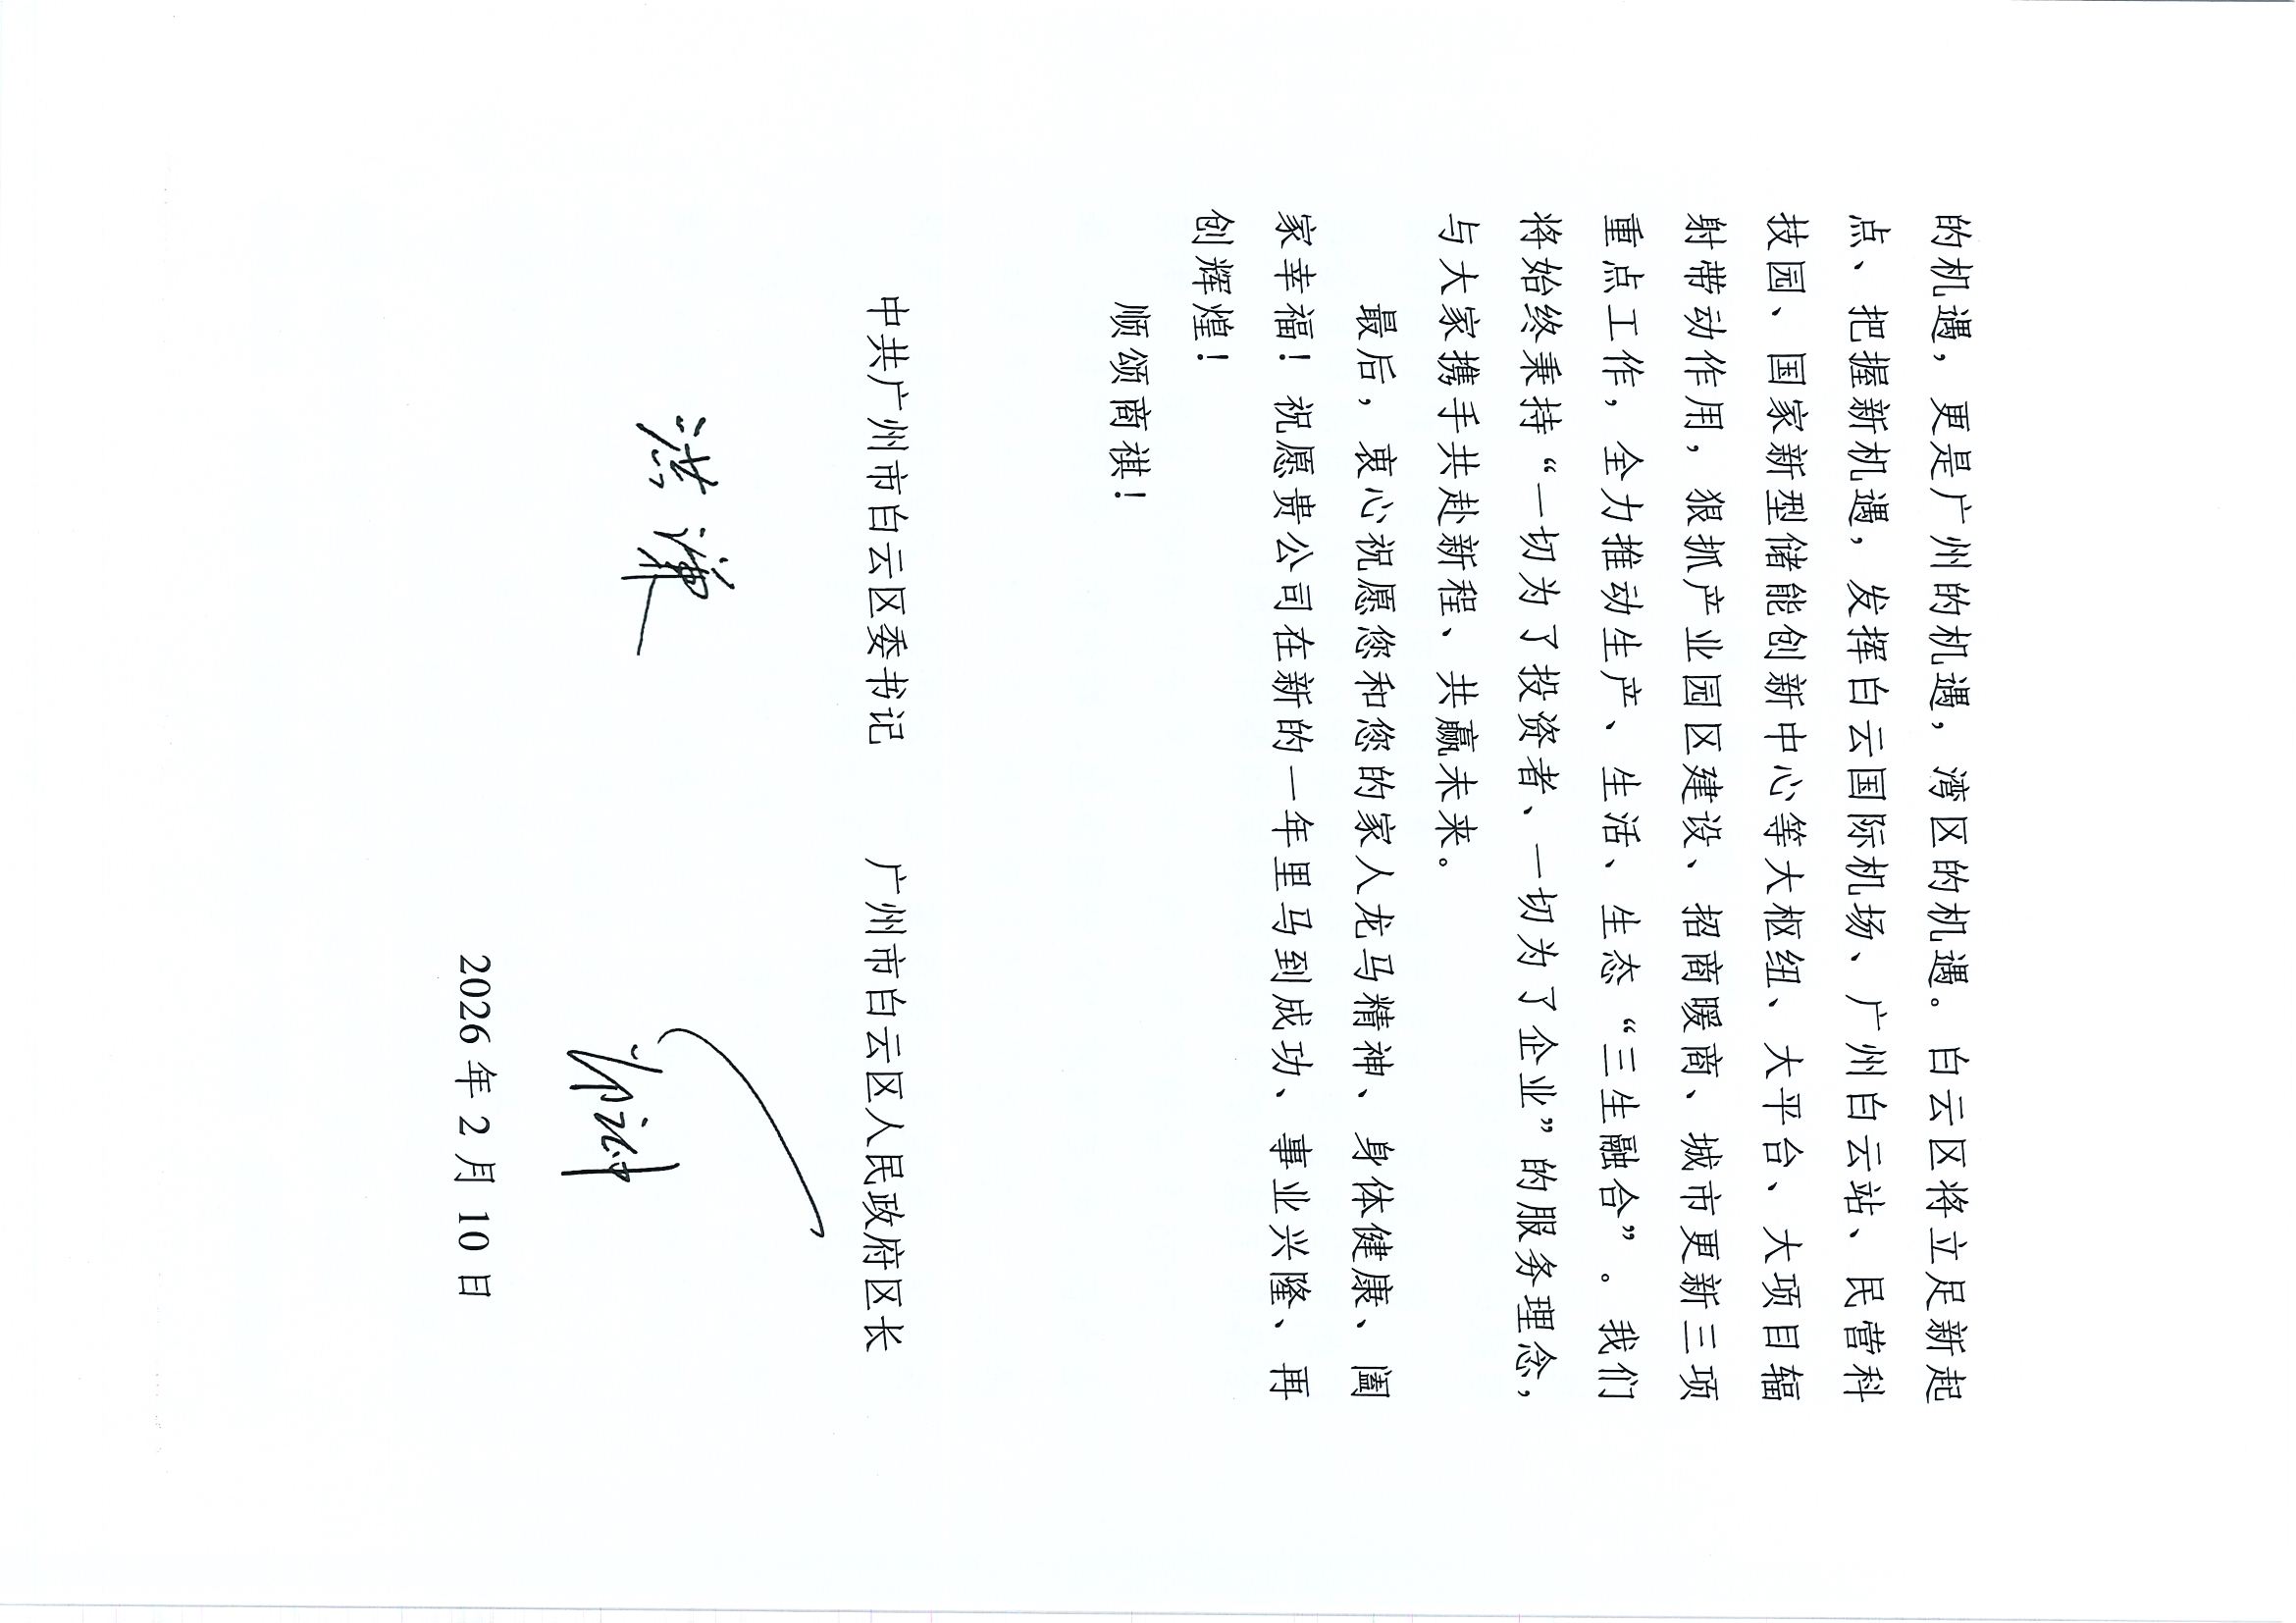 的机遇，更是广州的机遇，湾区的机遇。白云区将立足新起
点、把握新机遇，发挥白云国际机场、广州白云站、民营科
技园、国家新型储能创新中心等大枢纽、大平台、大项目辐
射带动作用，狠抓产业园区建设、招商暖商、城市更新三项
重点工作，全力推动生产、生活、生态“三生融合”。我们
将始终秉持“一切为了投资者、一切为了企业”的服务理念，
与大家携手共赴新程、共赢未来。
最后，衷心祝愿您和您的家人龙马精神、身体健康、阖
家幸福！祝愿贵公司在新的一年里马到成功、事业兴隆、再
创辉煌！
顺颂商祺！
中共广州市白云区委书记 广州市白云区人民政府区长
洪谦
2026年2月10日